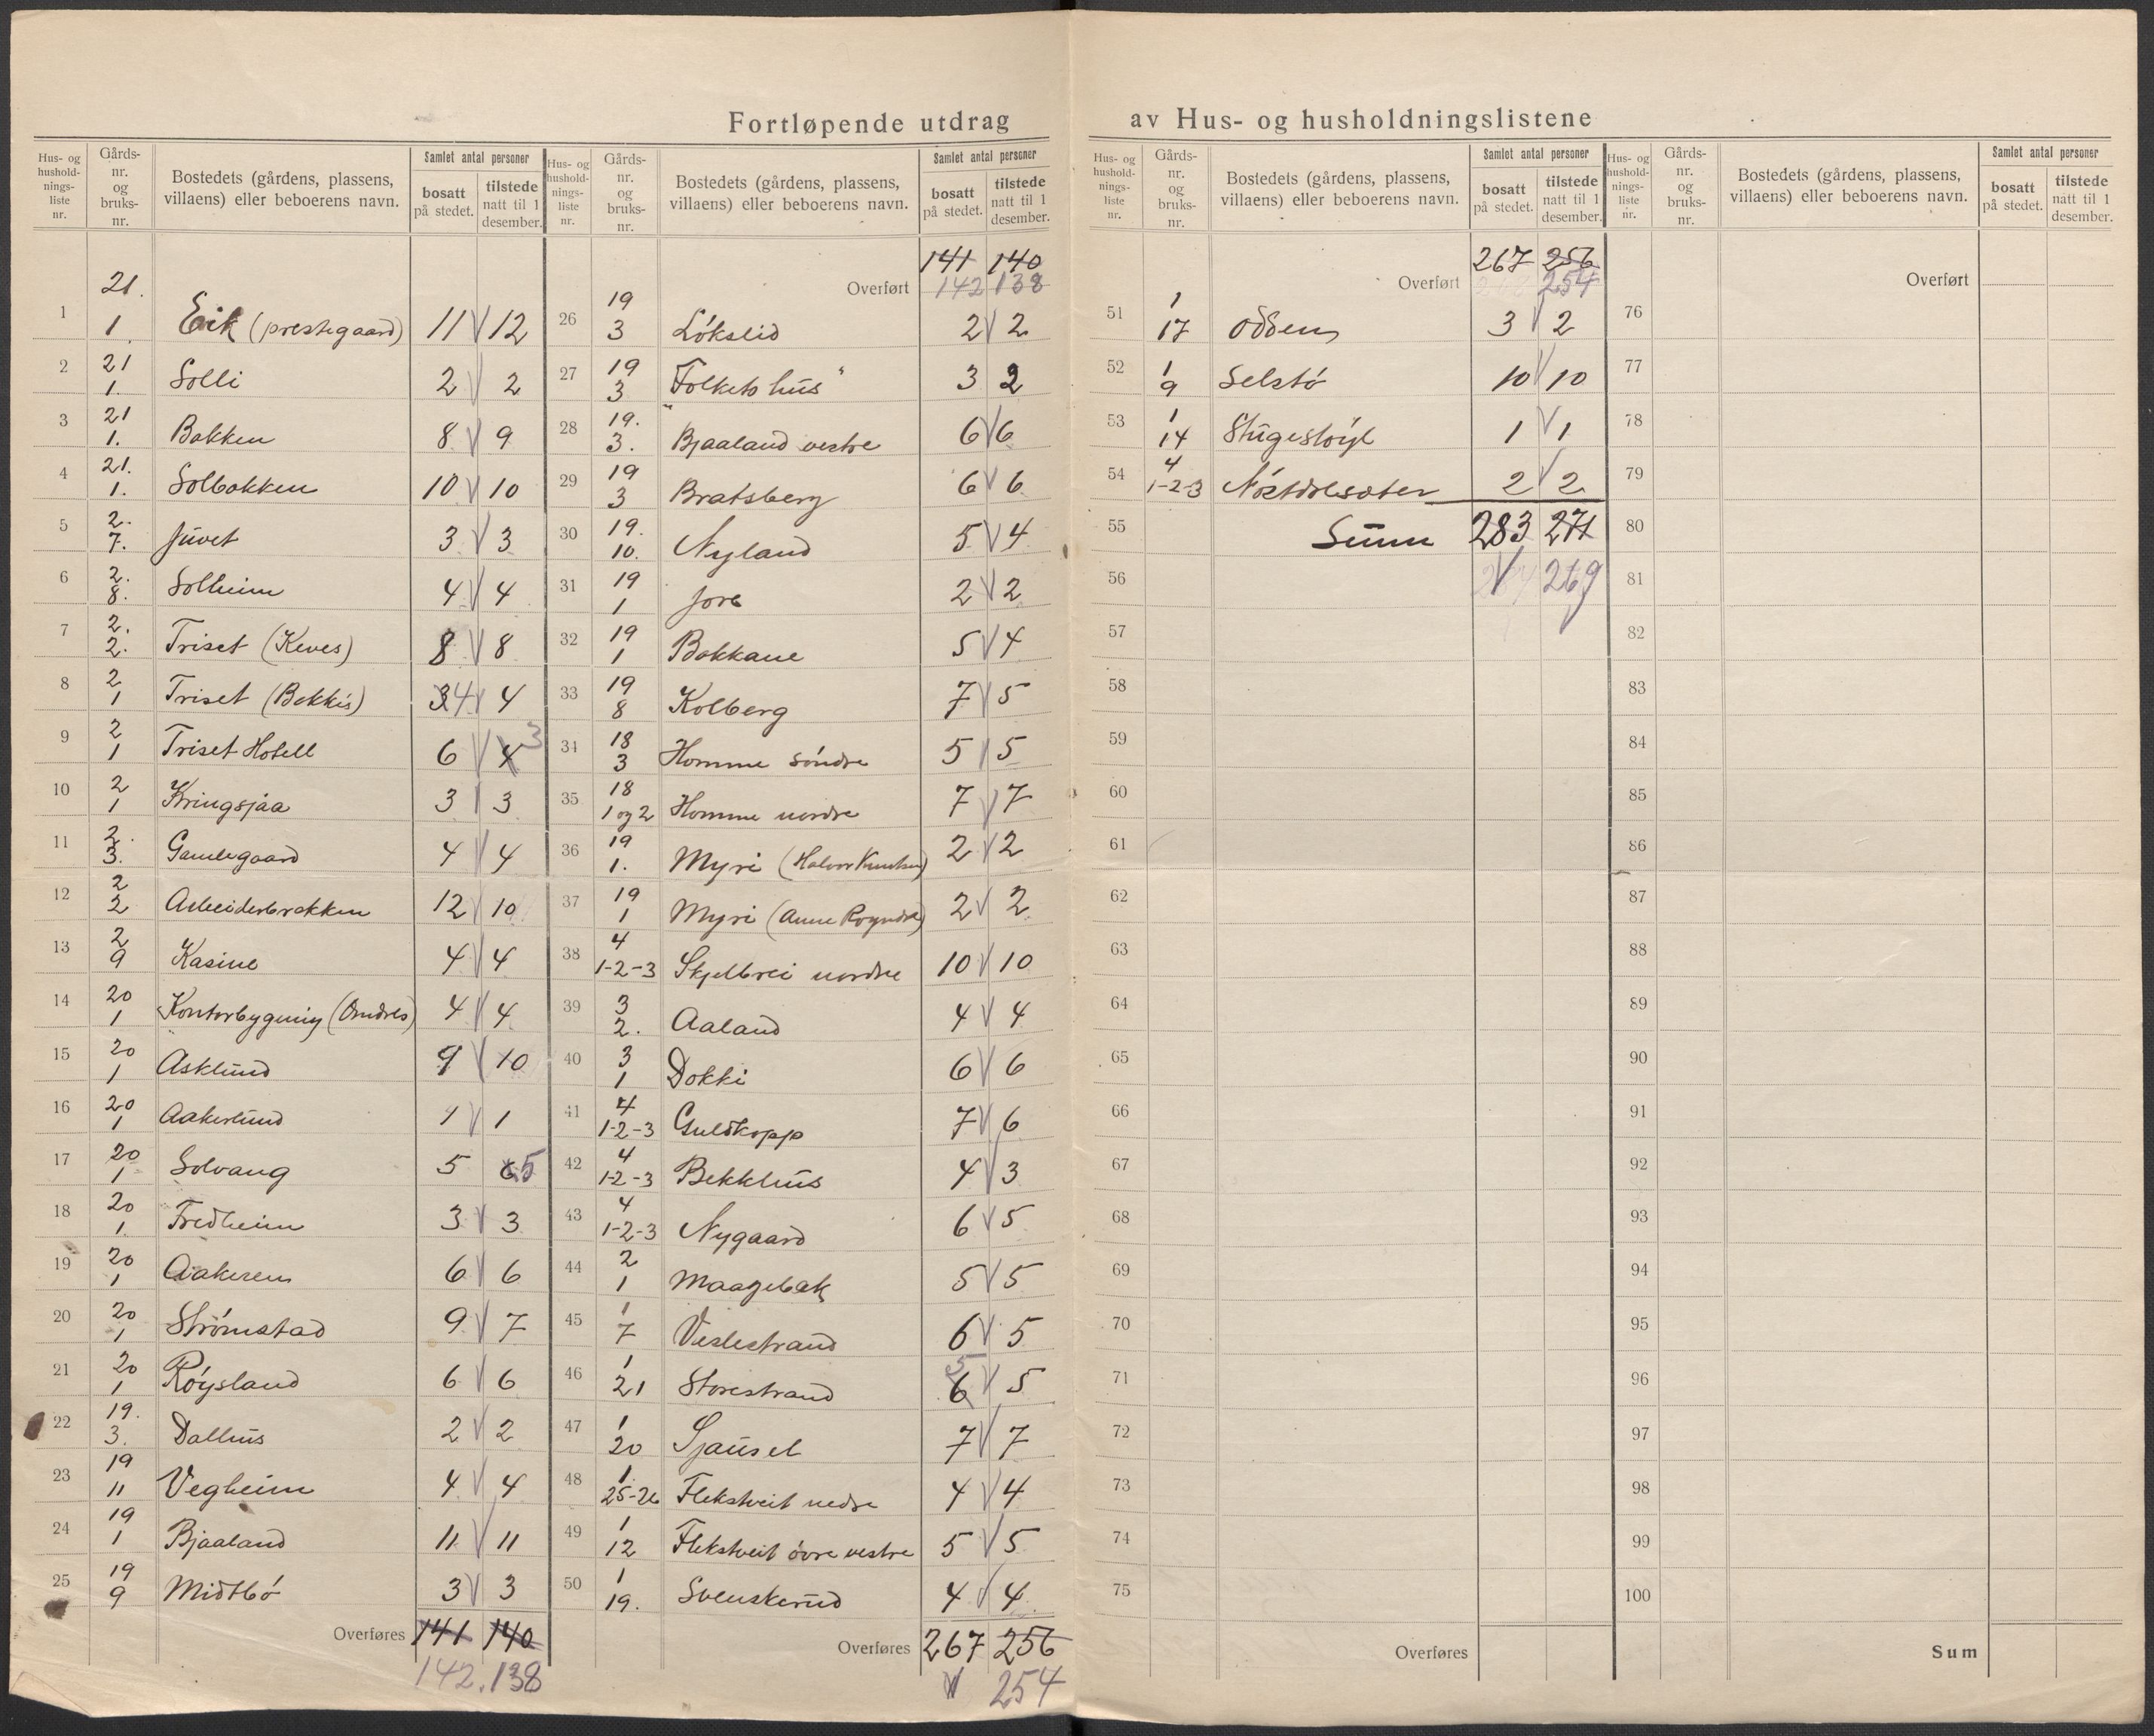 Fortløpende utdrag av Hus- og husholdningslistene
Hus- og hushold-nings-liste nr. | Gårds-nr. og bruks-nr. | Bostedets (gårdens, plassens, villaens) eller beboerens navn. | Samlet antal personer | bosatt på stedet. | tilstede natt til 1 desember.
1 | 21. 1. | Eik (prestegaard) | 11 | 12
2 | 21 1. | Solli | 2 | 2
3 | 21 1. | Bakken | 8 | 9
4 | 21. 1. | Solbakken | 10 | 10
5 | 2. 7. | Juvet | 3 | 3
6 | 2. 8. | Solheim | 4 | 4
7 | 2. 2. | Triset (Keves) | 8 | 8
8 | 2 1 | Triset (Bekkis) | 3 4 | 4
9 | 2 1 | Triset Hotell | 6 | 4 3
10 | 2 1 | Kringsjaa | 3 | 3
11 | 2. 3. | Gamlegaard | 4 | 4
12 | 2 2 | Arbeiderbrakken | 12 | 10
13 | 2 9 | Kasine | 4 | 4
14 | 20 1 | Kontorbygning | 4 | 4
15 | 20 1 | Asklund | 9 | 10
16 | 20 1 | Aakerlund | 1 | 1
17 | 20 1 | Solvang | 5 | 6 5
18 | 20 1. | Fredheim | 3 | 3
19 | 20 1 | Aakeren | 6 | 6
20 | 20 1 | Strømstad | 9 | 7
21 | 20 1 | Røysland | 6 | 6
22 | 19. 3. | Dalhus | 2 | 2
23 | 19 11 | Vegheim | 4 | 4
24 | 19 1 | Bjaaland | 11 | 11
25 | 19 9 | Midtbø | 3 | 3
Overføres 141 140
142. 138
Hus- og hushold-nings-liste nr. | Gårds-nr. og bruks-nr. | Bostedets (gårdens, plassens, villaens) eller beboerens navn. | Samlet antal personer | bosatt på stedet. | tilstede natt til 1 desember.
141 140
Overført 142 138
26 | 19 3 | Løkslid | 2 | 2
27 | 19 3 | "Folkets hus" | 3 | 2
28 | 19. 3. | Bjaaland vestre | 6 | 6
29 | 19 3 | Bratsberg | 6 | 6
30 | 19. 10. | Nyland | 5 | 4
31 | 19 1 | Jore | 2 | 2
32 | 19 1 | Bakkane | 5 | 4
33 | 19 8 | Kolberg | 7 | 5
34 | 18 3 | Homme søndre | 5 | 5
35 | 18 1 og 2 | Homme nordre | 7 | 7
36 | 19 1. | Myri (Halvor Knutsen) | 2 | 2
37 | 19 1 | Myri (Anne) | 2 | 2
38 | 4 1-2-3 | Skjelbrei nordre | 10 | 10
39 | 3 2. | Aaland | 4 | 4
40 | 3 1 | Dokki | 6 | 6
41 | 4 1-2-3 | Guldkopp | 7 | 6
42 | 4 1-2-3 | Bekkhus | 4 | 3
43 | 4 1-2-3 | Nygaard | 6 | 5
44 | 2 1 | Maagebak | 5 | 5
45 | 1 7 | Veslestrand | 6 | 5
46 | 1 21 | Storestrand | 6 5 | 5
47 | 1 20 | Sjausel | 7 | 7
48 | 1 25-26 | Flekstveit nedre | 4 | 4
49 | 1 12 | Flekstveit øvre vestre | 5 | 5
50 | 1 19. | Svenskerud | 4 | 4
Overføres 267 256
254
Hus- og hushold-nings-liste nr. | Gårds-nr. og bruks-nr. | Bostedets (gårdens, plassens, villaens) eller beboerens navn. | Samlet antal personer | bosatt på stedet. | tilstede natt til 1 desember.
267 256
Overført 254
51 | 1 17 | Odden | 3 | 2
52 | 1 9 | Selstø | 10 | 10
53 | 1 14 | Stugesløyt | 1 | 1
54 | 4 1-2-3 | | 2 | 2
55 | Sum | 283 | 271
56 | 269
57
58
59
60
61
62
63
64
65
66
67
68
69
70
71
72
73
74
75
Overføres
Hus- og hushold-nings-liste nr. | Gårds-nr. og bruks-nr. | Bostedets (gårdens, plassens, villaens) eller beboerens navn. | Samlet antal personer | bosatt på stedet. | tilstede natt til 1 desember.
Overført
76
77
78
79
80
81
82
83
84
85
86
87
88
89
90
91
92
93
94
95
96
97
98
99
100
Sum